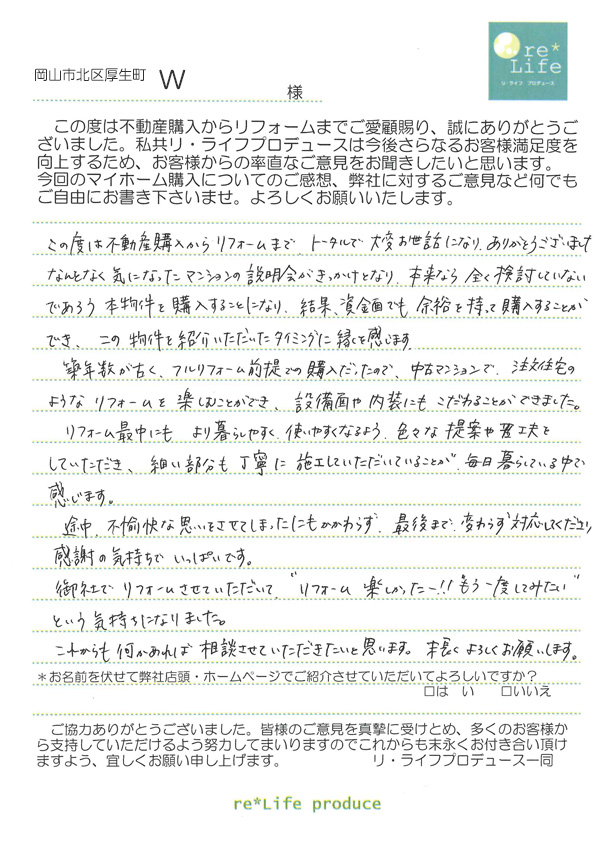 re*
Life
リ・ライフ プロデュース
岡山市北区厚生町 W 様
この度は不動産購入からリフォームまでご愛顧賜り、誠にありがとうご
ざいました。私共リ・ライフプロデュースは今後さらなるお客様満足度を
向上するため、お客様からの率直なご意見をお聞きしたいと思います。
今回のマイホーム購入についてのご感想、弊社に対するご意見など何でも
ご自由にお書き下さいませ。よろしくお願いいたします。
この度は不動産購入からリフォームまで、トータルで大変お世話になり、ありがとうございました
なんとなく気になったマンションの説明会がきっかけとなり、本来なら全く検討していない
であろう本物件を購入することになり、結果、資金面でも余裕を持って購入することが
でき、この物件を紹介いただいたタイミングに縁を感じます。
築年数が古く、フルリフォーム前提での購入だったので、中古マンションで、注文住宅の
ようなリフォームを楽しむことができ、設備面や内装にもこだわることができました。
リフォーム最中にも より暮らしやすく、使いやすくなるよう、色々な提案や工夫を
していただき、細い部分も丁寧に施工していただいていることが、毎日暮らしている中で
感じます。
途中、不愉快な思いをさせてしまったにもかかわらず、最後まで、変わらず対応してくださり、
感謝の気持ちでいっぱいです。
御社でリフォームさせていただいて、"リフォーム 楽しかったー!!もう一度してみたい"
という気持ちになりました。
これからも何かあれば相談させていただきたいと思います。末長くよろしくお願いします。
*お名前を伏せて弊社店頭・ホームページでご紹介させていただいてよろしいですか?
□は い □いいえ
ご協力ありがとうございました。皆様のご意見を真摯に受けとめ、多くのお客様か
ら支持していただけるよう努力してまいりますのでこれからも末永くお付き合い頂け
ますよう、宜しくお願い申し上げます。 リ・ライフプロデュース一同
re*Life produce